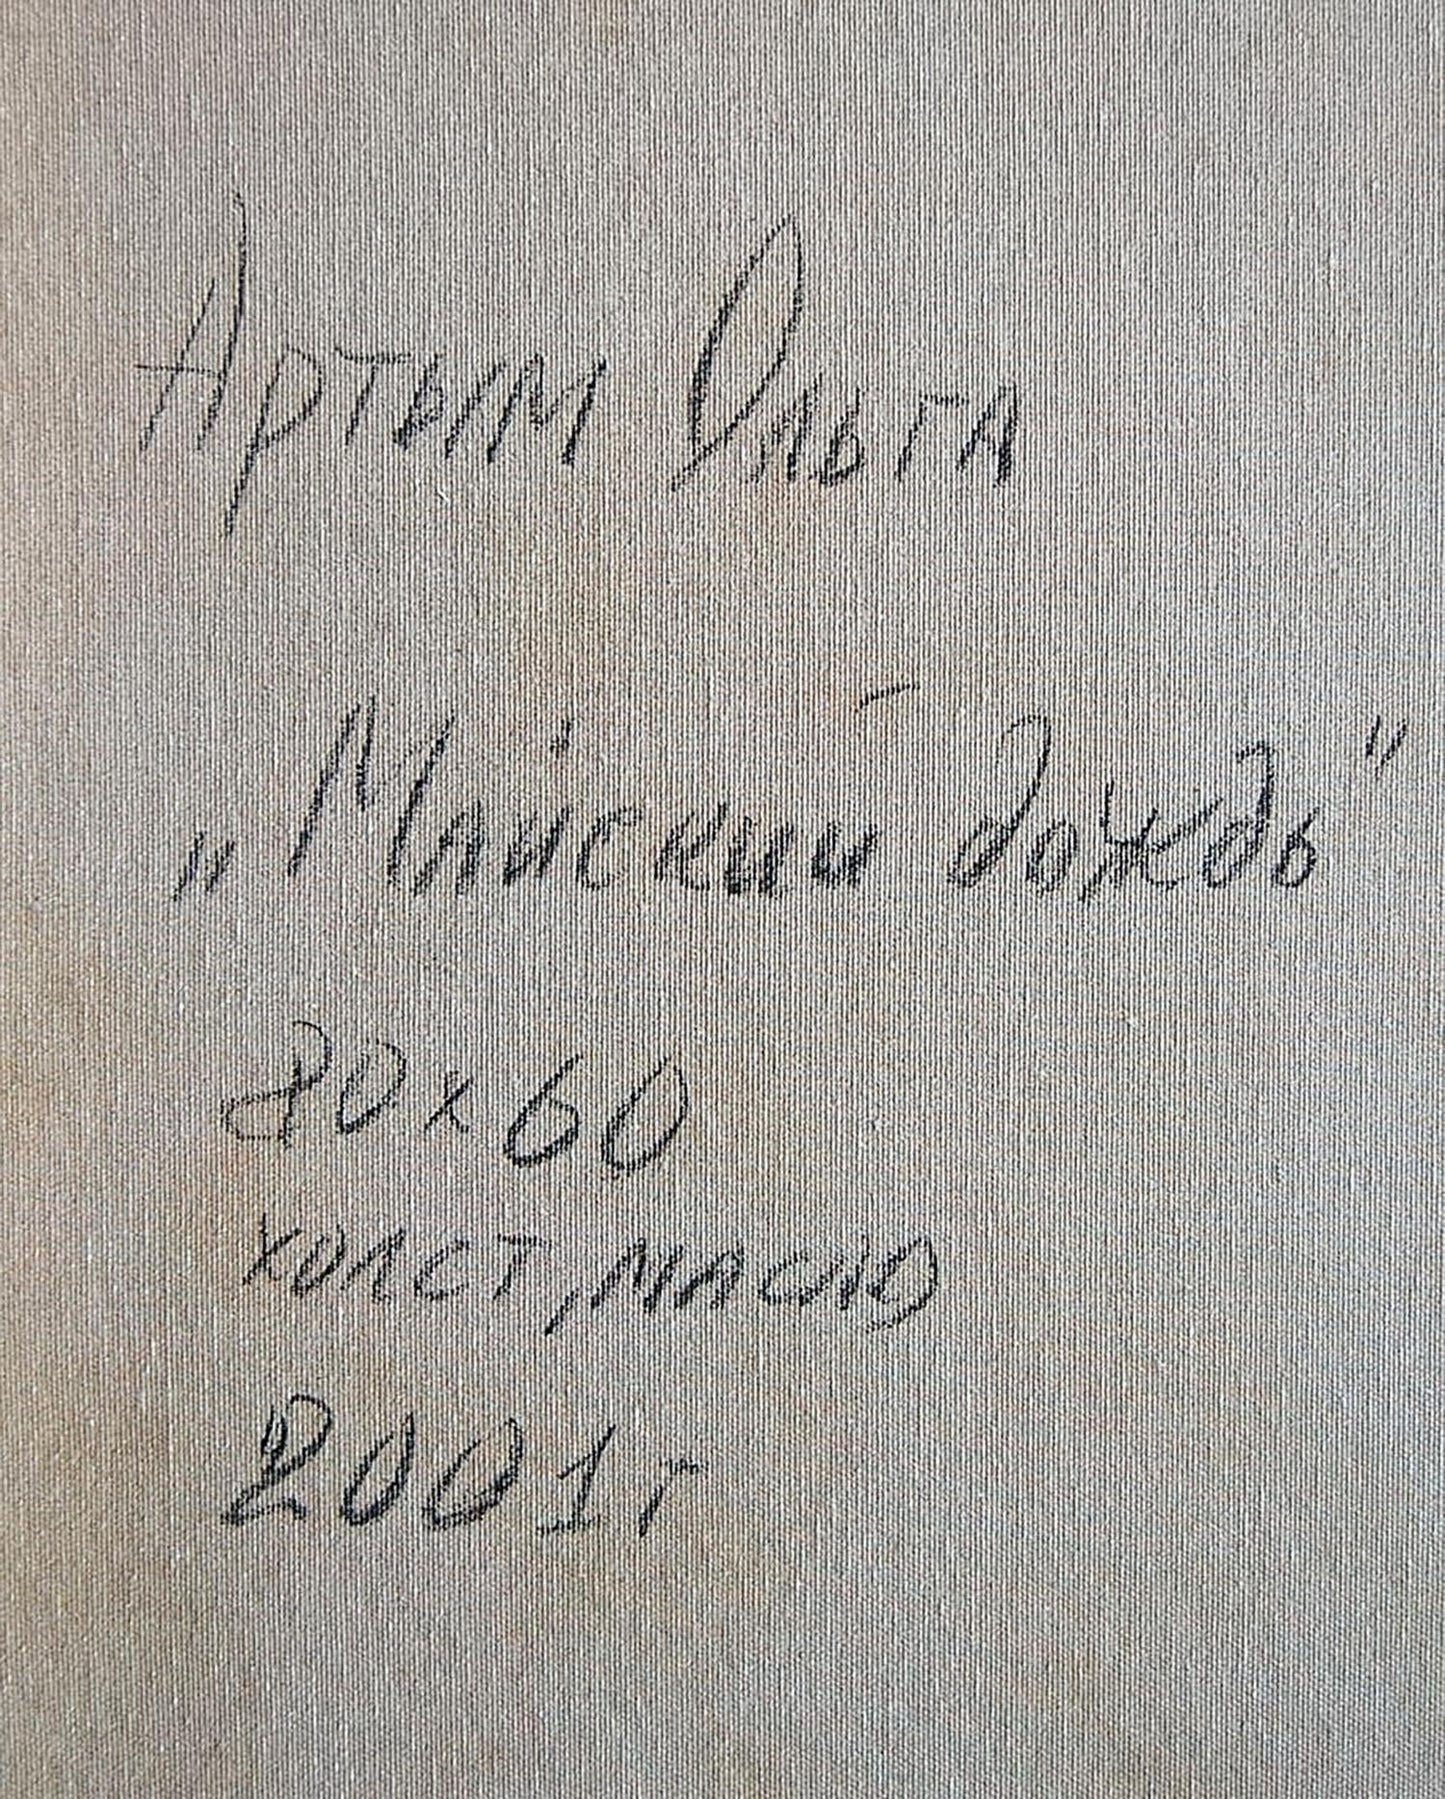 Артым Ольга
„Майский дождь"
80х60
холст, масло
2001г